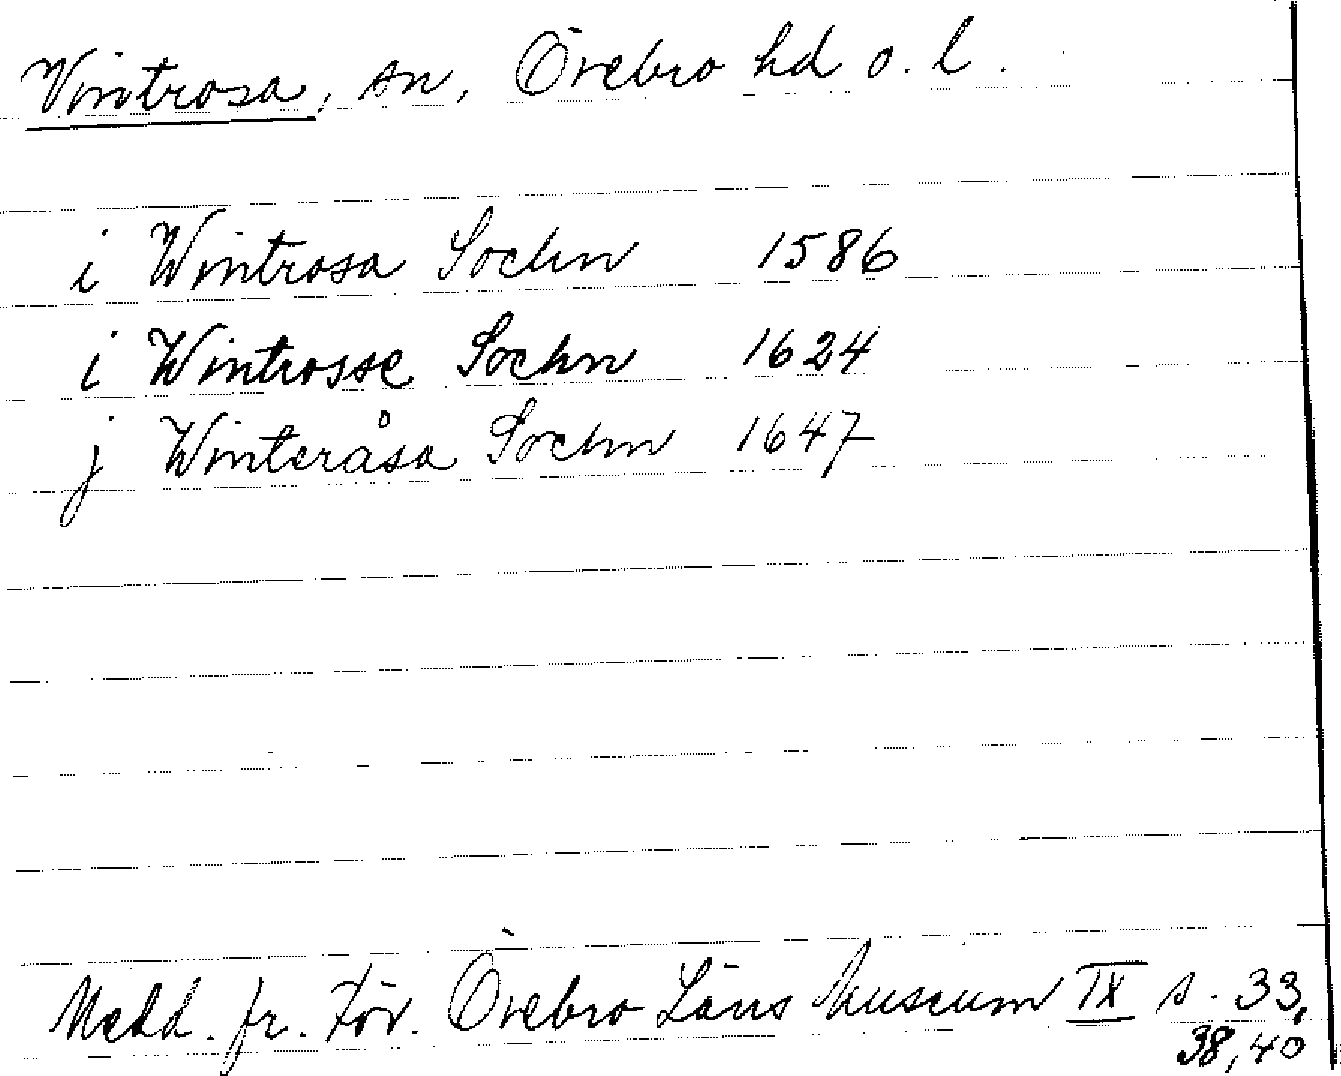 Vintrosa, sn, Örebro hd o. l.
i Wintrosa Sochn 1586
i Wintrosse Sochn 1624
j Winteråsa Sochn 1647
Medd. fr. För. Örebro Läns Museum IX s. 33,
38, 40